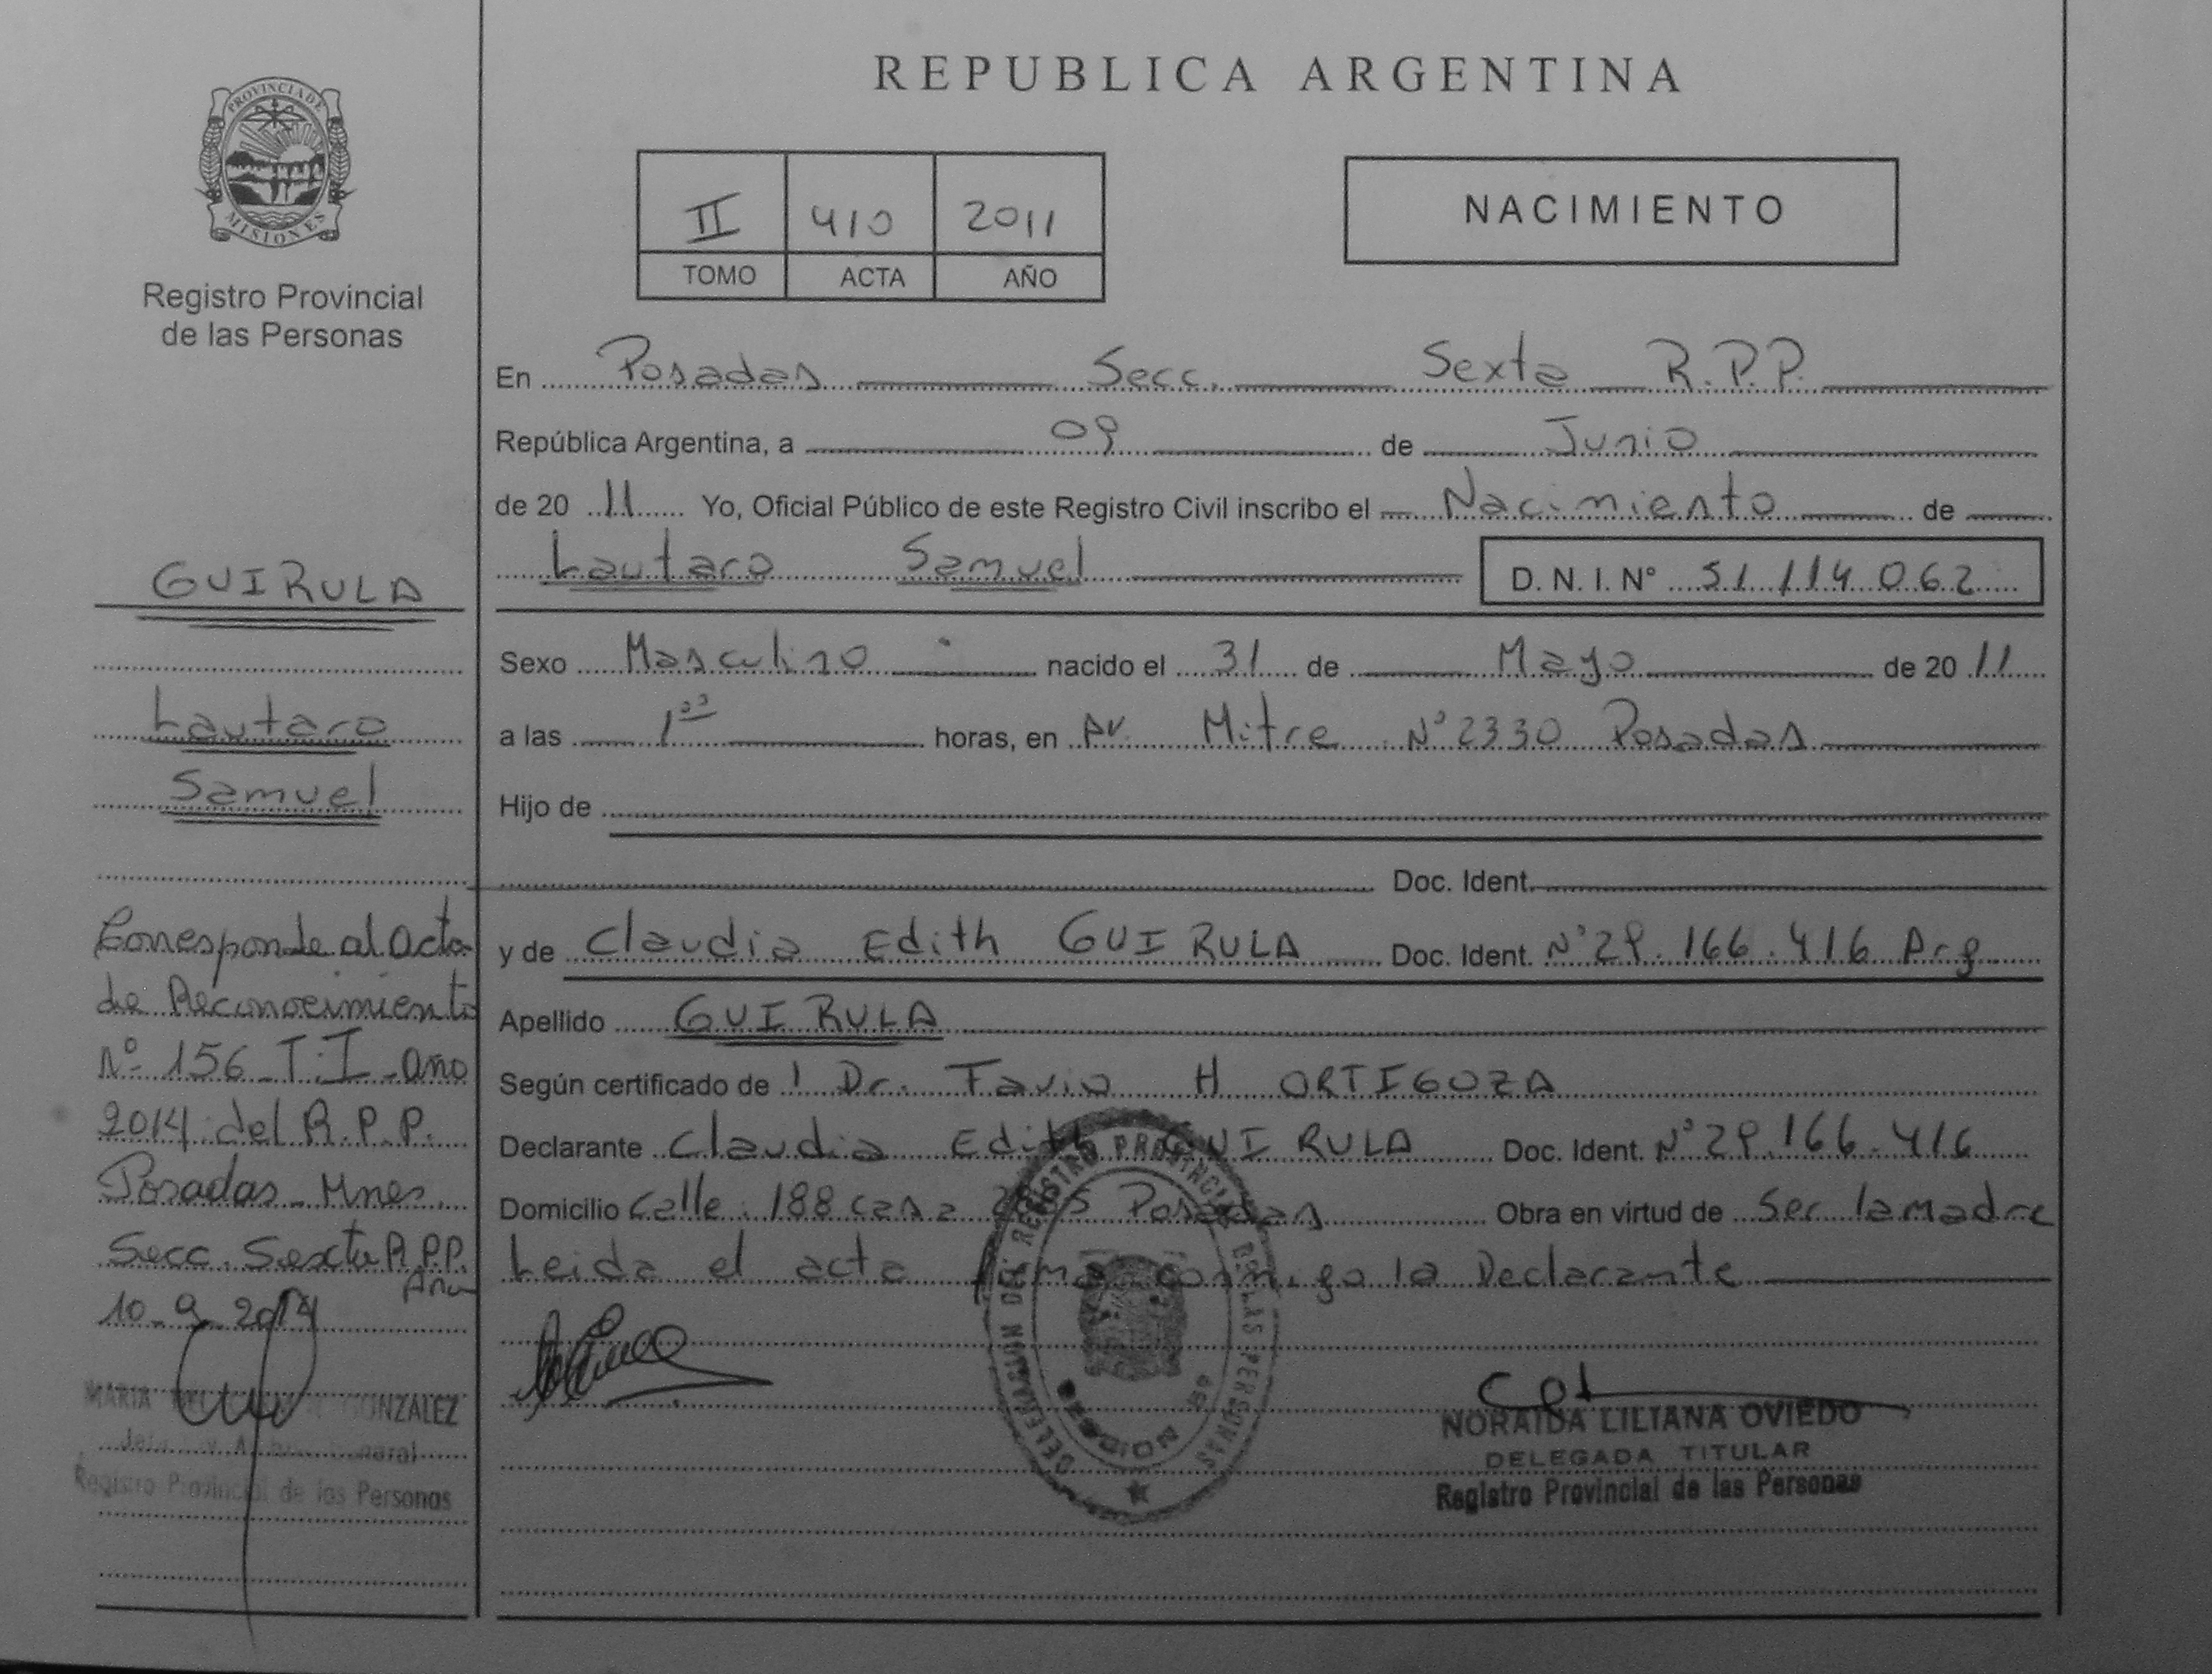 REPUBLICA ARGENTINA
PROVINCIA DE
MISIONES
Registro Provincial
de las Personas
II 410 2011
TOMO ACTA AÑO
NACIMIENTO
En Posadas Secc. Sexta R.P.P.
República Argentina, a 09 de Junio
de 20 11 Yo, Oficial Público de este Registro Civil inscribo el Nacimiento de
Lautaro Samuel D. N. I. N° 51 114 062
Sexo Masculino nacido el 31 de Mayo de 20 11
a las 1 horas, en Av. Mitre N° 2330 Posadas
Hijo de
Doc. Ident.
y de Claudia Edith GUIRULA Doc. Ident. N° 29.166.416 Arg
Apellido GUIRULA
Según certificado de l Dr. Favio H ORTIGOZA
Declarante Claudia Edith GUIRULA Doc. Ident. N° 29.166.416
Domicilio Calle 188 casa Posadas Obra en virtud de Ser la madre
Leida el acta firma conmigo la Declarante
GUIRULA
Lautaro
Samuel
Corresponde al Acta
de Reconocimiento
Nº 156 T. I - año
2014 del R.P.P.
Posadas - Mnes.
Secc. Sexta R.P.P.
10-9-2014
MARIA DEL GONZALEZ
Registro Provincial de las Personas
DELEGACION DEL REGISTRO PROVINCIAL DE LAS PERSONAS
NORAIDA LILIANA OVIEDO
DELEGADA TITULAR
Registro Provincial de las Personas